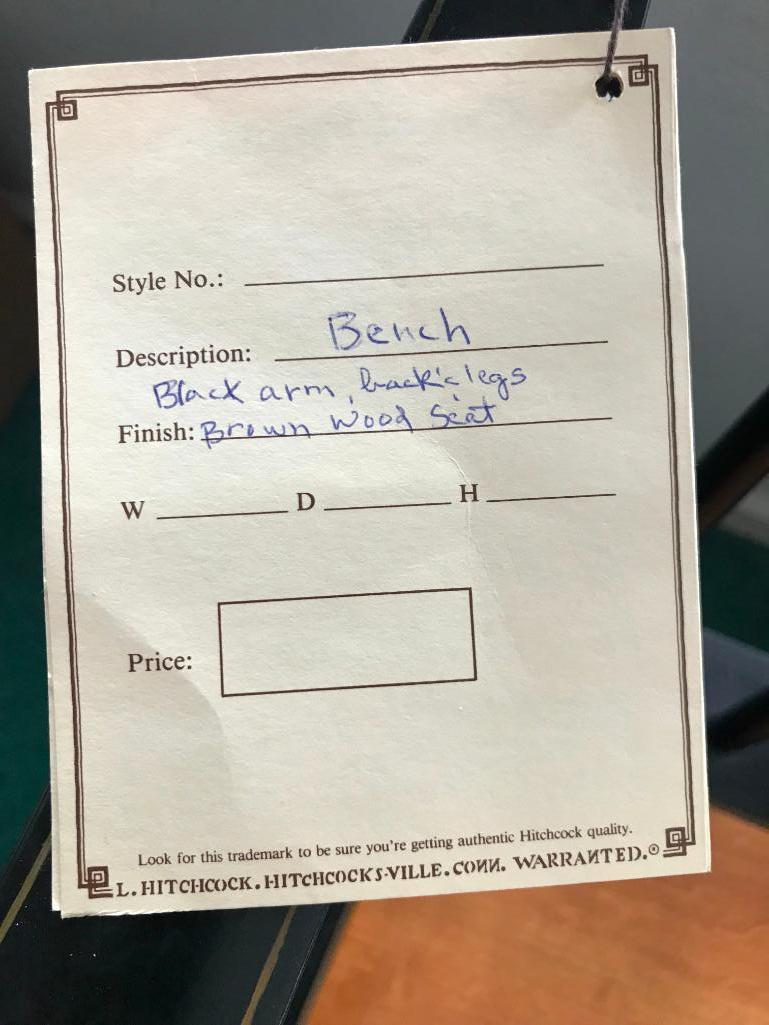 Style No.:
Description: Bench
Black arm, back & legs
Finish: Brown Wood Seat
W D H
Price:
Look for this trademark to be sure you're getting authentic Hitchcock quality.
L. HITCHCOCK. HITCHCOCKS-VILLE. CONN. WARRANTED.®